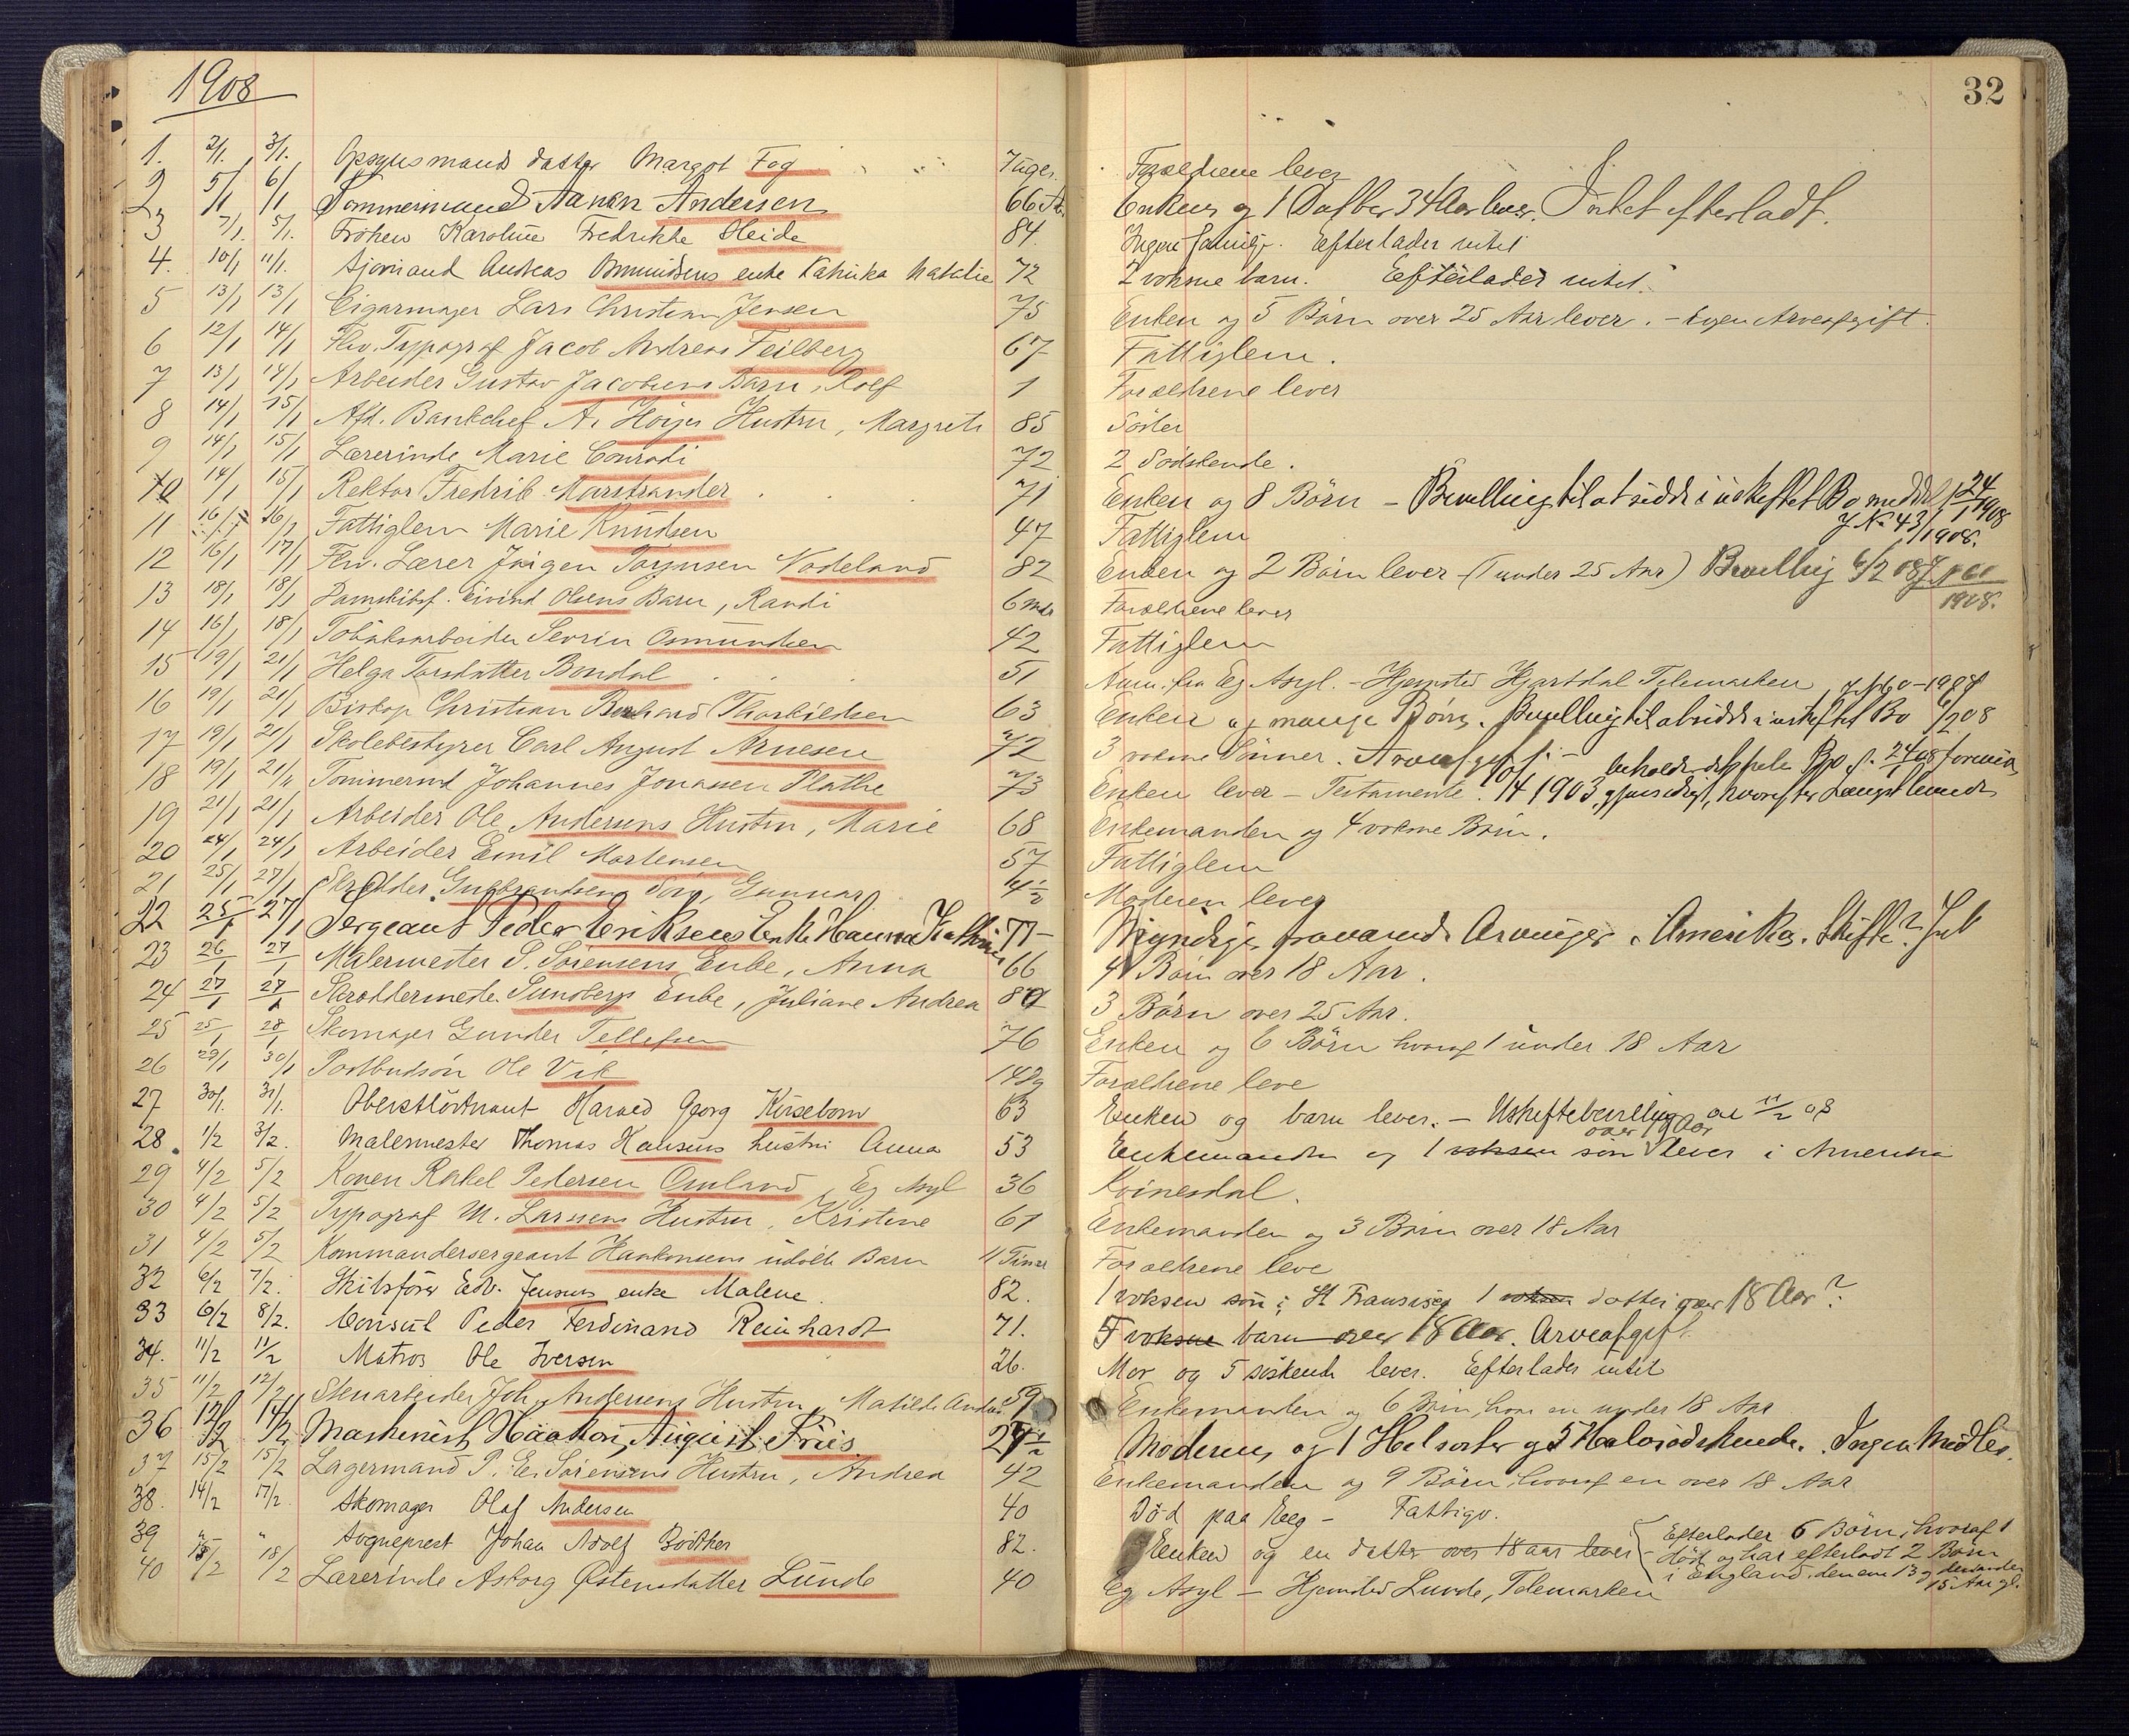 1908
32
1. 2/1. 3/1. Opsynsmands datter Margot Fog 7 uger. Forældrene lever
2. 5/1 6/1 Tømmermand Aanen Andersen 66 Enken og 1 Datter 34 Aar lever. Intet efterladt.
3 7/1. 5/1. Frøken Karoline Fredrikke Heide 84. Ingen familje. Efterlader intet
4. 10/1 11/1. Sjømand Andreas Omundsens enke Katrika Natalie 72 2 voksne barn. Efterlader intet.
5 13/1 13/1 Cigarmager Lars Christian Jensen 75 Enken og 5 Børn over 25 Aar lever. - Ingen Arveafgift.
6 12/1 14/1 Fhv. Typograf Jacob Andreas Feilberg 67 Fattiglem.
7 13/1 14/1 Arbeider Gustav Jacobsens Barn, Rolf 1 Forældrene lever
8 14/1 15/1 Afd. Bankchef A. Høyers Hustru, Margrete 85 Søster
9 14/1 15/1 Lærerinde Marie Conradi 72 2 Sødskende.
10 14/1 15/1 Rektor Fredrik Marstrander 71 Enken og 8 Børn - Bevilling til at sidde i uskiftet Bo meddelt 24/1 1908
J No 43/1908.
11 16/1 16/1 Fattiglem Marie Knudsen 47 Fattiglem
12 16/1 17/1 Fhv. Lærer Jørgen Torjusen Nodeland 82 Enken og 2 Børn lever (1 under 25 Aar) Bevilling 6/2 08 J N 60
1908.
13 18/1 18/1 Damskibsf. Eivind Olsens Barn, Randi 6 Mdr Forældrene lever
14 16/1 18/1 Tobaksarbeider Sevrin Osmundsen 42 Fattiglem
15 19/1 21/1 Helga Torsdatter Bondal 51 Anm. fra Eg Asyl. - Hjemsted Hjartdal Telemarken
16 19/1 21/1 Biskop Christian Bernhard Thorkildsen 63 Enken og mange Børn. Bevilling til at sidde i uskiftet Bo 6/2 08
17 19/1 21/1 Skolebestyrer Carl August Arnesen 72 3 voksne Sønner. Arveafgift -
18 19/1 21/1 Tømmermd Johannes Jonassen Plathe 73 Enken lever - Testamente 1903 gjensidigt, hvorefter Længstlevende
beholder det hele Bo
19 21/1 21/1 Arbeider Ole Andersens Hustru, Marie 68 Enkemanden og 4 voksne Børn.
20 24/1 24/1 Arbeider Emil Mortensen 57 Fattiglem
21 25/1 27/1 Skrædder Gulbrandsens Søn, Gunnar 4 1/2 Moderen lever
22 25/1 27/1 Sergeant Peder Eriksens Enke Hanna Kathrine 77 Myndige fraværende Arvinger i Amerika. Skifte?
23 26/1 27/1 Malermester S. Sørensens Enke, Anna 66 4 Børn over 18 Aar.
24 27/1 27/1 Skræddermester Sundbergs Enke, Juliane Andrea 3 Børn over 25 Aar.
25 25/1 28/1 Skomager Gunder Tellefsen 76 Enken og 6 Børn hvoraf 1 under 18 Aar
26 29/1 30/1 Postbudsøn Ole Vik 14 Dg Forældrene leve
27 30/1. 31/1. Oberstløitnant Harald Georg Kirsebom 63 Enken og barn lever. - Uskiftebevilling av 11/2 08
28. 1/2 3/2. Malermester Thomas Hansens hustru Anna 53 Enkemanden og 1 voksen søn over 18 Aar lever i Amerika
29 4/2 5/2 Konen Rakel Pedersen Omland, Eg Asyl 36 Kvinesdal.
30 4/2 5/2 Typograf M. Larsens Hustru, Kristine 61 Enkemanden og 3 Børn over 18 Aar
31 4/2 5/2 Kommandersergeant Haakonsens udøbte Barn 11 Timer Forældrene leve
32 6/2 7/2. Skibsfører Edv. Jensens enke Malene. 82. 1 voksen søn i St Fransisco 1 voksen datter over 18 Aar?
33 6/2 8/2. Consul Peder Ferdinand Reinhardt 71. 5 voksne barn over 18 Aar. Arveafgift.
34. 11/2 11/2 Matros Ole Iversen 26. Mor og 5 søskende lever. Efterlader intet
35 11/2 12/2 Stenarbeider Joh. Andersens Hustru, Matilde 59 Enkemanden og 6 Børn, hvor en under 18 Aar
36 12/2 14/2 Maskinist Haakon August Friis 27 1/2 Moderen og 1 Helsøster og 5 Halvsødskende. Ingen Midler.
37 15/2 15/2 Lagermand P. E. Sørensens Hustru, Andrea 42 Enkemanden og 9 Børn, hvoraf en over 18 Aar
38. 14/2 17/2. Skomager Olaf Andersen 40 Død paa Eeg - Fattigv.
39 " " Sogneprest Johan Adolf Bødtker 82. Enken og en datter over 18 aar lever - Efterlader 6 Børn, hvoraf 1
død og har efterladt 2 Børn
i England, den ene 13 og den anden
15 Aar gl.
40 15/2 18/2 Lærerinde Asborg Østensdatter Lunde 40 Eg Asyl - Hjemsted Lunde, Telemarken